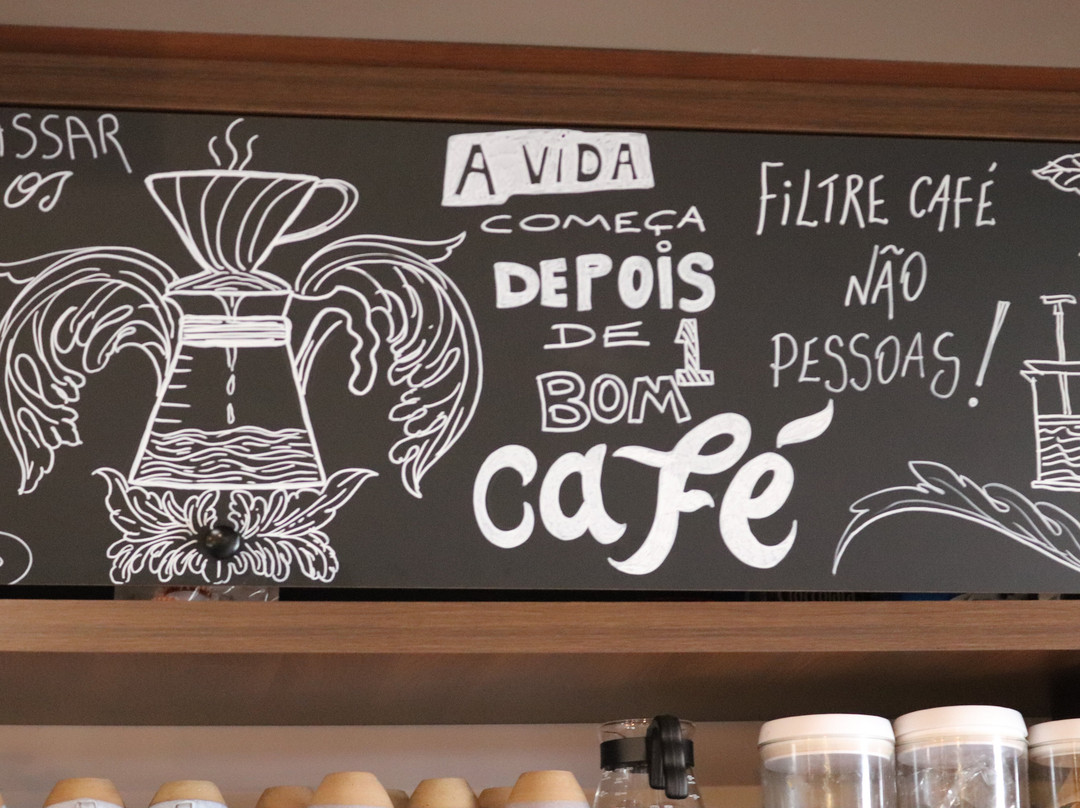 OS
A VIDA
COMEÇA
DEPOIS
DE 1
BOM
café
FILTRE CAFÉ
NÃO
PESSOAS!